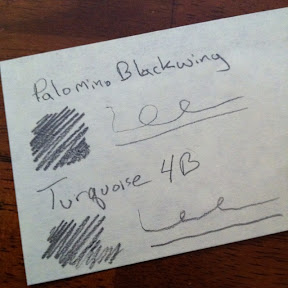 Palomino Blackwing
Lee
Turquoise 4B
Lee